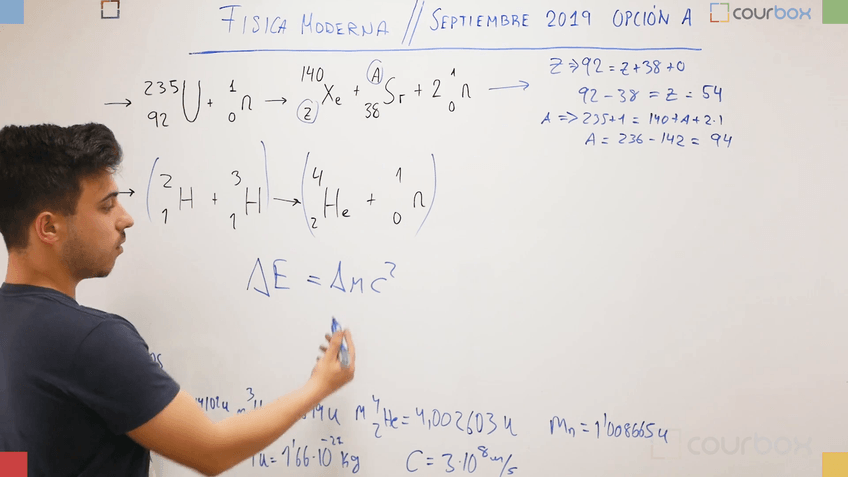 FISICA MODERNA // SEPTIEMBRE 2019 OPCIÓN A
courbox
→ ²³⁵₉₂U + ¹₀n → ¹⁴⁰_Z Xe + ᴬ₃₈Sr + 2 ¹₀n →
Z => 92 = Z + 38 + 0
92 - 38 = Z = 54
A => 235 + 1 = 140 + A + 2·1
A = 236 - 142 = 94
→ (²₁H + ³₁H) → (⁴₂He + ¹₀n)
ΔE = Δmc²
m ⁴₂He = 4,002603 u
mn = 1'008665 u
1u = 1'66·10⁻²⁷ Kg
C = 3·10⁸ m/s
courbox